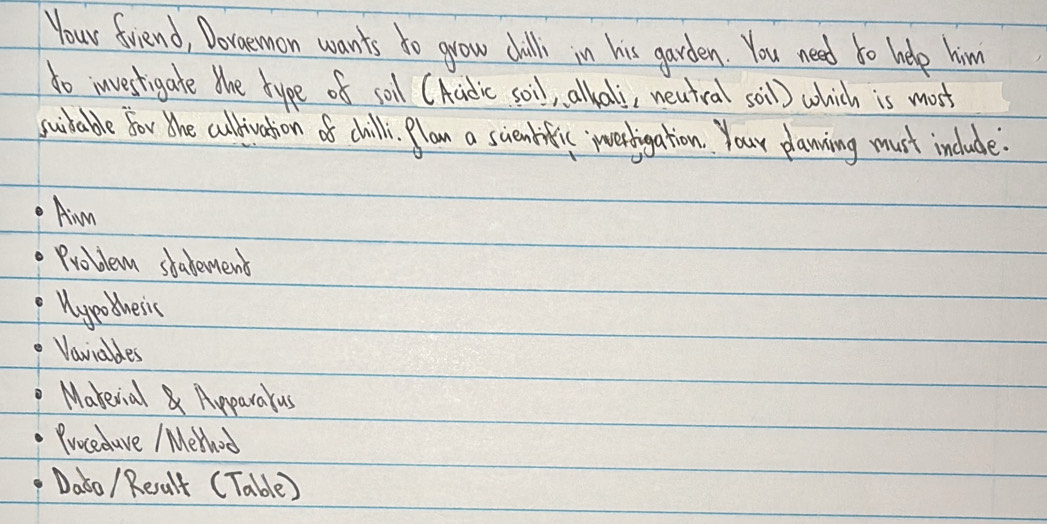 Your friend, Doraemon wants to grow chilli in his garden. You need to help him
to investigate the type of soil (Acidic soil, alkali, neutral soil) which is most
suitable for the cultivation of chilli. Plan a scientific investigation. Your planning must include:
• Aim
• Problem statement
• Hypothesis
• Variables
• Material & Apparatus
• Procedure / Method
• Data / Result (Table)